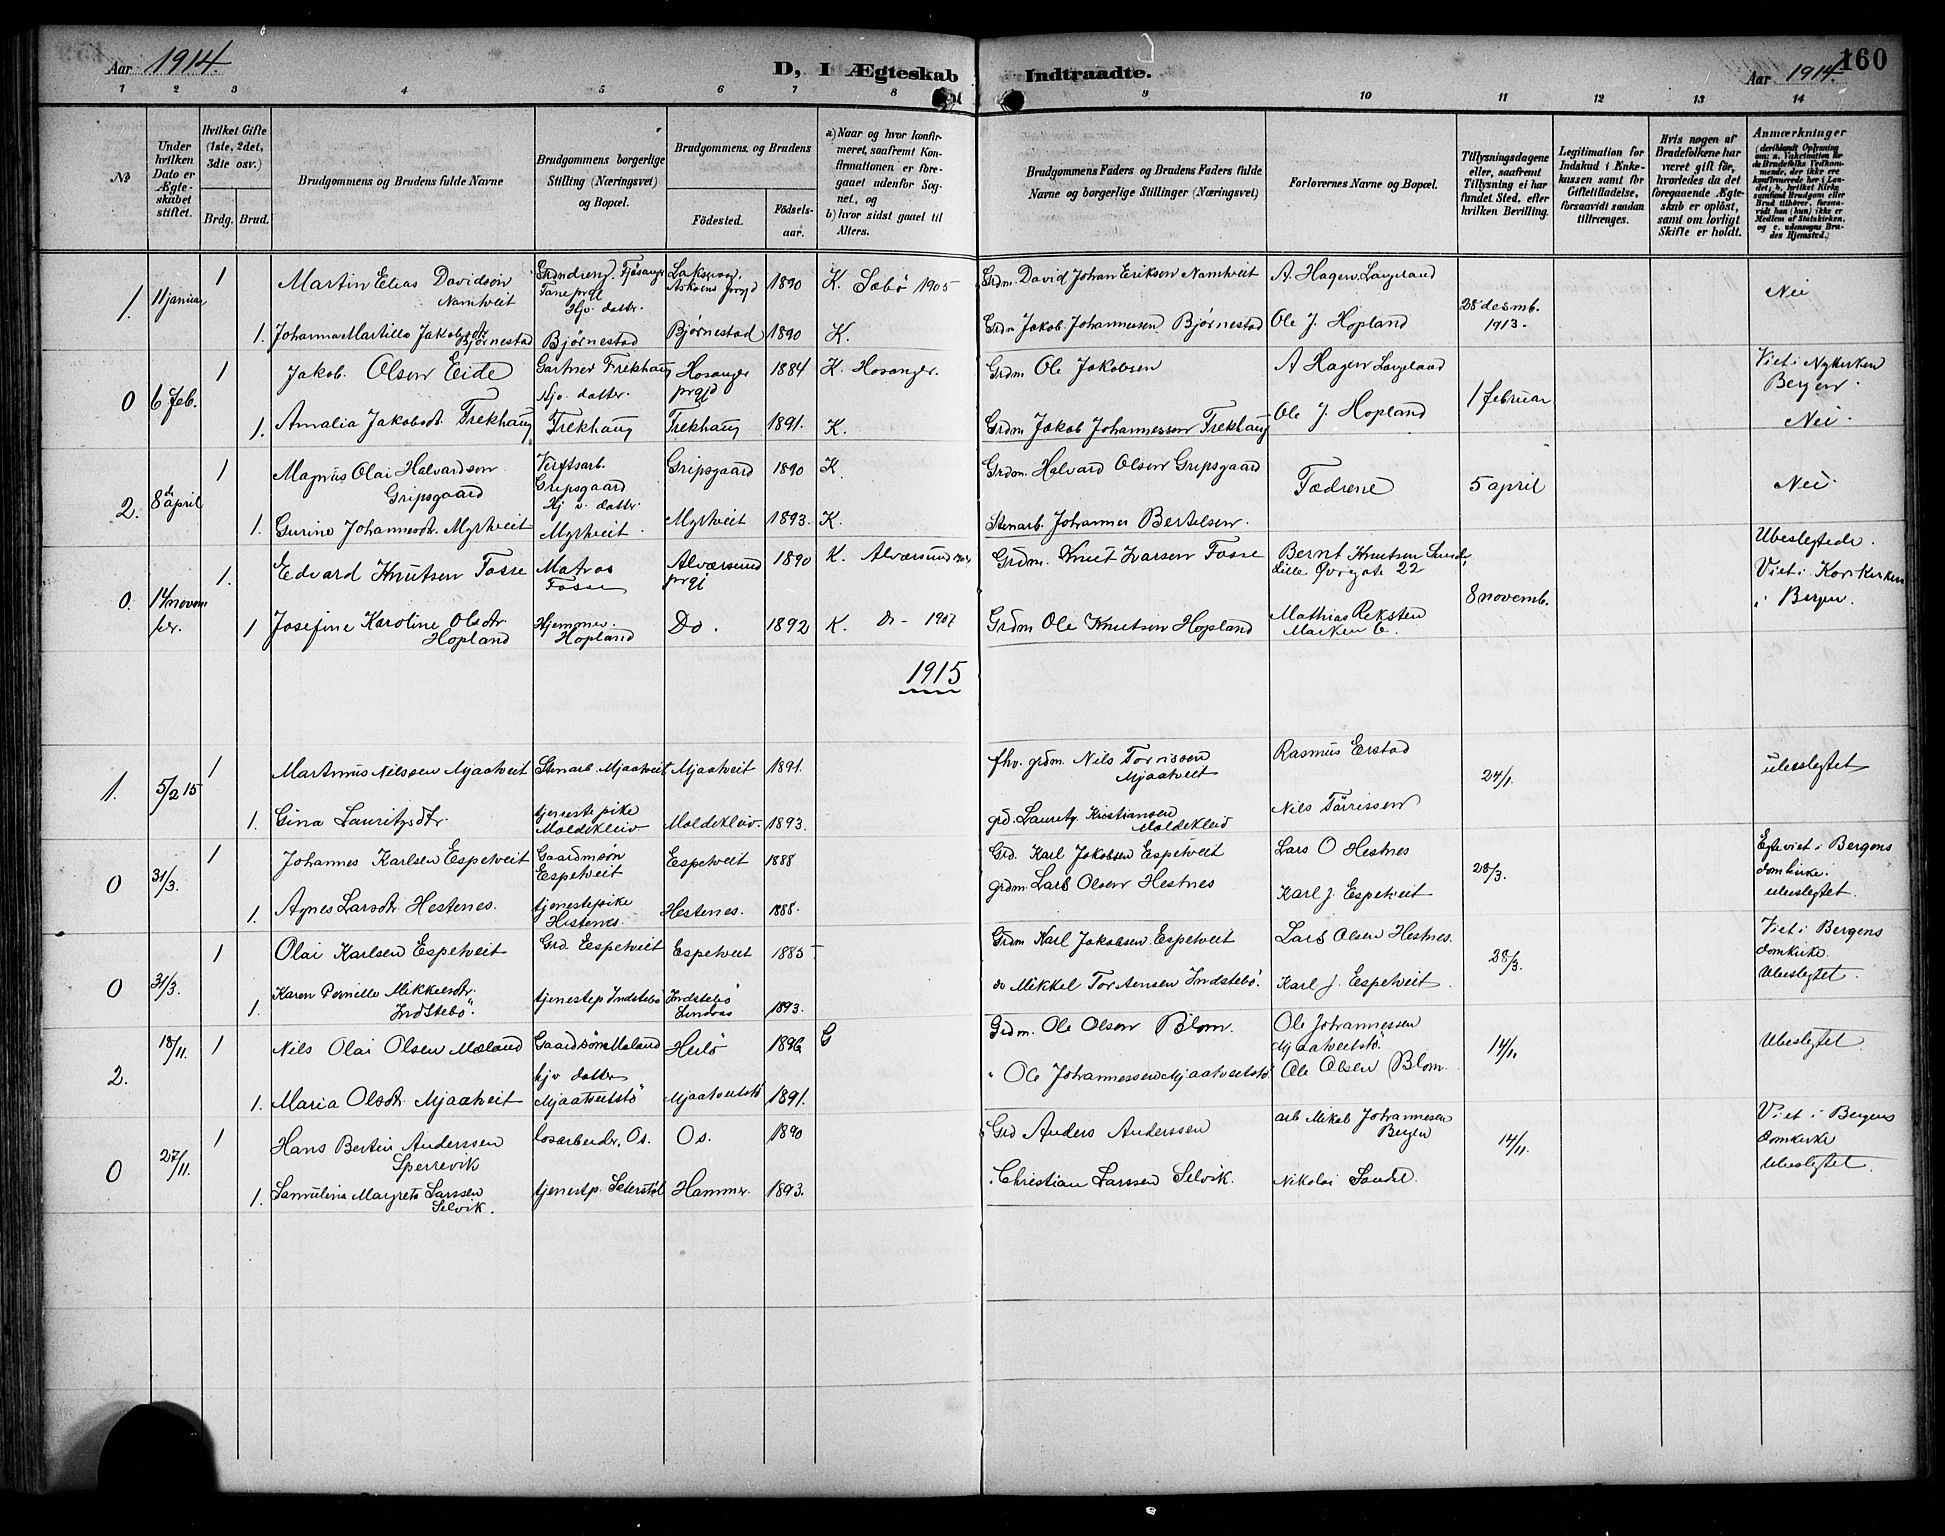 Aar 1914.
D, I Ægteskab Indtraadte.
160
Aar 1914.
1 2 3 4 5 6 7 8 9 10 11 12 13 14
No
Under hvilken Dato er Ægteskabet stiftet.
Hvilket Gifte (1ste, 2det, 3die osv.)
Brdg. Brud.
Brudgommens og Brudens fulde Navne
Brudgommens borgerlige Stilling (Næringsvei) og Bopæl.
Brudgommens og Brudens
Fødested.
Fødselsaar.
a) Naar og hvor konfirmeret, saafremt Konfirmationen er foregaaet udenfor Sognet, og
b) hvor sidst gaaet til Alters.
Brudgommens Faders og Brudens Faders fulde Navne og borgerlige Stillinger (Næringsvei)
Forlovernes Navne og Bopæl.
Tillysningsdagene eller, saafremt Tillysning ei har fundet Sted, efter hvilken Bevilling.
Legitimation for Indskud i Enkekassen samt for Giftetilladelse, forsaavidt saadan tiltrænges.
Hvis nogen af Brudefolkene har været gift før, hvorledes da det foregaaende Ægteskab er opløst, samt om lovligt Skifte er holdt.
Anmærkninger
(deriblandt Oplysning om: a. Vakcination for de Brudefolks Vedkommende, der ikke ere konfirmerede her i Landet; b. hvilket Kirkesamfund Brudgom eller Brud tilhører, forsaavidt han (hun) ikke er Medlem af Statskirken, og c. udensogns Brudes Hjemsted.)
1. 11 januar 1 Martin Elias Davidson Namtveit Grdndreng. Fjøsanger Fane prgl Laksevaag. Askøens prgjd 1890 K. Sæbø 1905 Grdm. David Johan Eriksen Namtveit A. Hagen Langeland 28 desmb. 1913. Nei
1. Johanna Martille Jakobsdtr Bjørnestad Hjv. datter. Bjørnestad Bjørnestad 1890 K. Grdm Jakob Johannessen Bjørnestad Ole J. Hopland
0 6 feb. 1 Jakob Olsen Eide Gartner Frekhaug Hosanger prgjd 1884 K. Hosanger. Grdm Ole Jakobsen A Hagen Langeland 1 februar Viet i Nykirken Bergen.
1. Amalia Jakobsdt. Frekhaug Hjv. datter. Frekhaug Frekhaug 1891. K. Grdm Jakob Johannessen Frekhaug Ole J. Hopland Nei.
2. 8de april 1 Magnus Olai Halvardsen Gripsgaard Verftsarb. Gripsgaard Gripsgaard 1890 K Grdm. Halvard Olsen Gripsgaard Fædrene 5 april Nei.
1. Gurine Johannesdt. Myrtveit Hj v. datter Myrtveit. Myrtveit 1893. K. Stenarb. Johannes Bertelsen.
0. 14 november. 1. Edvard Knutsen Fosse Matros Fosse Alværsund prgj 1890 K. Alværsund Grdm. Knut Larsen Fosse Bernt Knutsen Lille Øvregate 22 8 novemb. Ubeslegtede. Viet i Korskirken i Bergen.
1 Josefine Karoline Olsdtr Hopland Hjemmev. Hopland Do. 1892 K. Do - 1907 Grdm Ole Knutsen Hopland Mathias Reksten Marken 6.
1915
1. 5/2 15 1 Martinus Nilssen Mjaatveit Stenarb. Mjaatveit Mjaatveit 1891. fhv. grdm. Nils Torrissen Mjaatveit Rasmus Erstad 24/1. ubeslegtet
1. Gina Lauritzsdtr. tjenestepike Moldekleiv Moldekleiv. 1893. grd. Lauritz Kristiansen Moldekleiv Nils Torrissen
0 31/3. 1 Johannes Karlsen Espetveit Gaardmsøn Espetveit Espetveit 1888 Grd. Karl Jakobsen Espetveit Lars O Hestnes 28/3. Egteviet i Bergens domkirke. ubeslegtet.
1. Agnes Larsdtr. Hestenes. tjenestepike Hestenes. Hestenes. 1888. grdm. Lars Olsen Hestnes Karl J. Espetveit
0 31/3. 1 Olai Karlsen Espetveit Grd. Espetveit Espetveit 1885 Grdm Karl Jakobsen Espetveit Lars Olsen Hestnes. 28/3. Viet i Bergens domkirke. Ubeslegtet.
1. Karen Pernille Mikkelsdtr. Indstebø. tjenestep. Indstebø Indstebø Lindaas 1893. do Mikkel Torstensen Indstebø. Karl J. Espetveit
2. 18/11. 1 Nils Olai Olsen Mæland Gaardsøn Mæland Herlø 1896 G Grdm. Ole Olsen Blom. Ole Johannessen Mjaatveitstø. 14/11 Ubeslegtet.
1. Maria Olsdt. Mjaatveit hjv datter Mjaatveitstø Mjaatveitstø 1891. " Ole Johannessen Mjaatveitstø Ole Olsen Blom.
0 27/11. 1 Hans Bertin Anderssen Sperrevik losarbeider, Os. Os. 1890 Grd Anders Anderssen arb Mikal Johannesen Bergen 14/11. Viet i Bergens domkirke Ubeslegtet.
1. Samulina Margrete Larssen Selvik. tjenestep. Seterstøl Hammer. 1893. " Christian Larssen Selvik. Nikolai Sandal